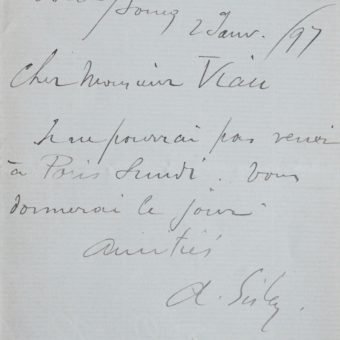 2 Janv. /97
Cher Monsieur Viau
Je ne pourrai pas venir
à Paris Lundi. Vous
donnerai le jour.
Amitiés
A. Sisley